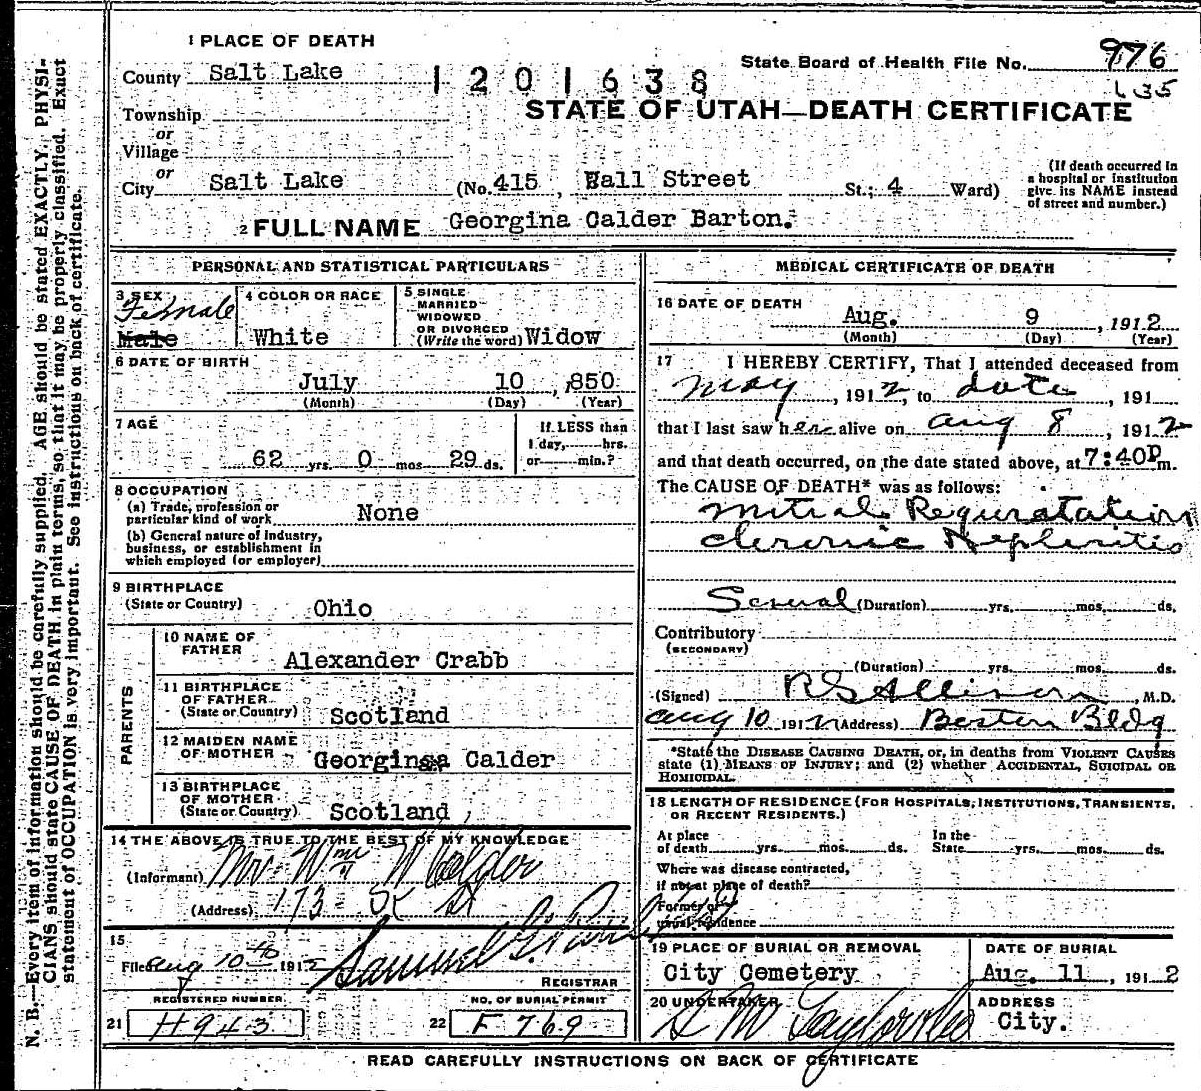 N. B.—Every item of information should be carefully supplied. AGE should be stated EXACTLY. PHYSI-
CIANS should state CAUSE OF DEATH in plain terms, so that it may be properly classified. Exact
statement of OCCUPATION is very important. See instructions on back of certificate.
1 PLACE OF DEATH
County Salt Lake
1201638
State Board of Health File No. 976
635
STATE OF UTAH—DEATH CERTIFICATE
Township
or
Village
or
City Salt Lake (No. 415, Wall Street St.; 4 Ward)
(If death occurred in
a hospital or institution
give its NAME instead
of street and number.)
2 FULL NAME Georgina Calder Barton.
PERSONAL AND STATISTICAL PARTICULARS
3 SEX Female
Male
4 COLOR OR RACE
White
5 SINGLE
MARRIED
WIDOWED
OR DIVORCED
(Write the word) Widow
6 DATE OF BIRTH
July 10, 1850
(Month) (Day) (Year)
7 AGE
62 yrs. 0 mos. 29 ds.
If LESS than
1 day, hrs.
or min.?
8 OCCUPATION
(a) Trade, profession or
particular kind of work None
(b) General nature of industry,
business, or establishment in
which employed (or employer)
9 BIRTHPLACE
(State or Country) Ohio
PARENTS
10 NAME OF
FATHER Alexander Crabb
11 BIRTHPLACE
OF FATHER
(State or Country) Scotland
12 MAIDEN NAME
OF MOTHER Georgina Calder
13 BIRTHPLACE
OF MOTHER
(State or Country) Scotland
14 THE ABOVE IS TRUE TO THE BEST OF MY KNOWLEDGE
(Informant) Mr. Wm W Calder
(Address) 173 St
15
Filed Aug 10th 1912 Samuel G.
REGISTRAR
REGISTERED NUMBER
21 H943
NO. OF BURIAL PERMIT
22 F 769
MEDICAL CERTIFICATE OF DEATH
16 DATE OF DEATH
Aug. 9, 1912
(Month) (Day) (Year)
17 I HEREBY CERTIFY, That I attended deceased from
May, 1912, to date, 191
that I last saw her alive on Aug 8, 1912
and that death occurred, on the date stated above, at 7:40P m.
The CAUSE OF DEATH* was as follows:
Mitral Reguratation
Chronic Nephritis
Several (Duration) yrs. mos. ds.
Contributory
(SECONDARY)
(Duration) yrs. mos. ds.
(Signed) R G Allison, M.D.
Aug 10 1912 (Address) Boston Bldg
*State the DISEASE CAUSING DEATH, or, in deaths from VIOLENT CAUSES
state (1) MEANS OF INJURY; and (2) whether ACCIDENTAL, SUICIDAL OR
HOMICIDAL.
18 LENGTH OF RESIDENCE (FOR HOSPITALS, INSTITUTIONS, TRANSIENTS,
OR RECENT RESIDENTS.)
At place
of death yrs. mos. ds.
In the
State yrs. mos. ds.
Where was disease contracted,
If not at place of death?
Former or
usual residence
19 PLACE OF BURIAL OR REMOVAL
City Cemetery
DATE OF BURIAL
Aug. 11, 1912
20 UNDERTAKER
S M Taylor & Co
ADDRESS
City.
READ CAREFULLY INSTRUCTIONS ON BACK OF CERTIFICATE